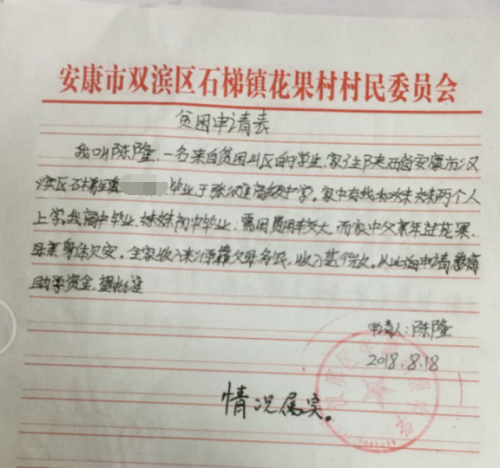 安康市双滨区石梯镇花果村村民委员会
贫困申请表
我叫陈隆,一名来自贫困山区的学生,家住陕西省安康市汉
滨区石梯镇 毕业于张滩高级中学。家中有我和妹妹两个人
上学。我高中毕业,妹妹初中毕业,需用费用较大,而家中父亲年过花甲,
母亲身体欠安。全家收入来源靠父母务农,收入甚微。从此海申请
助学资金,望批准
申请人:陈隆
2018.8.18
情况属实。